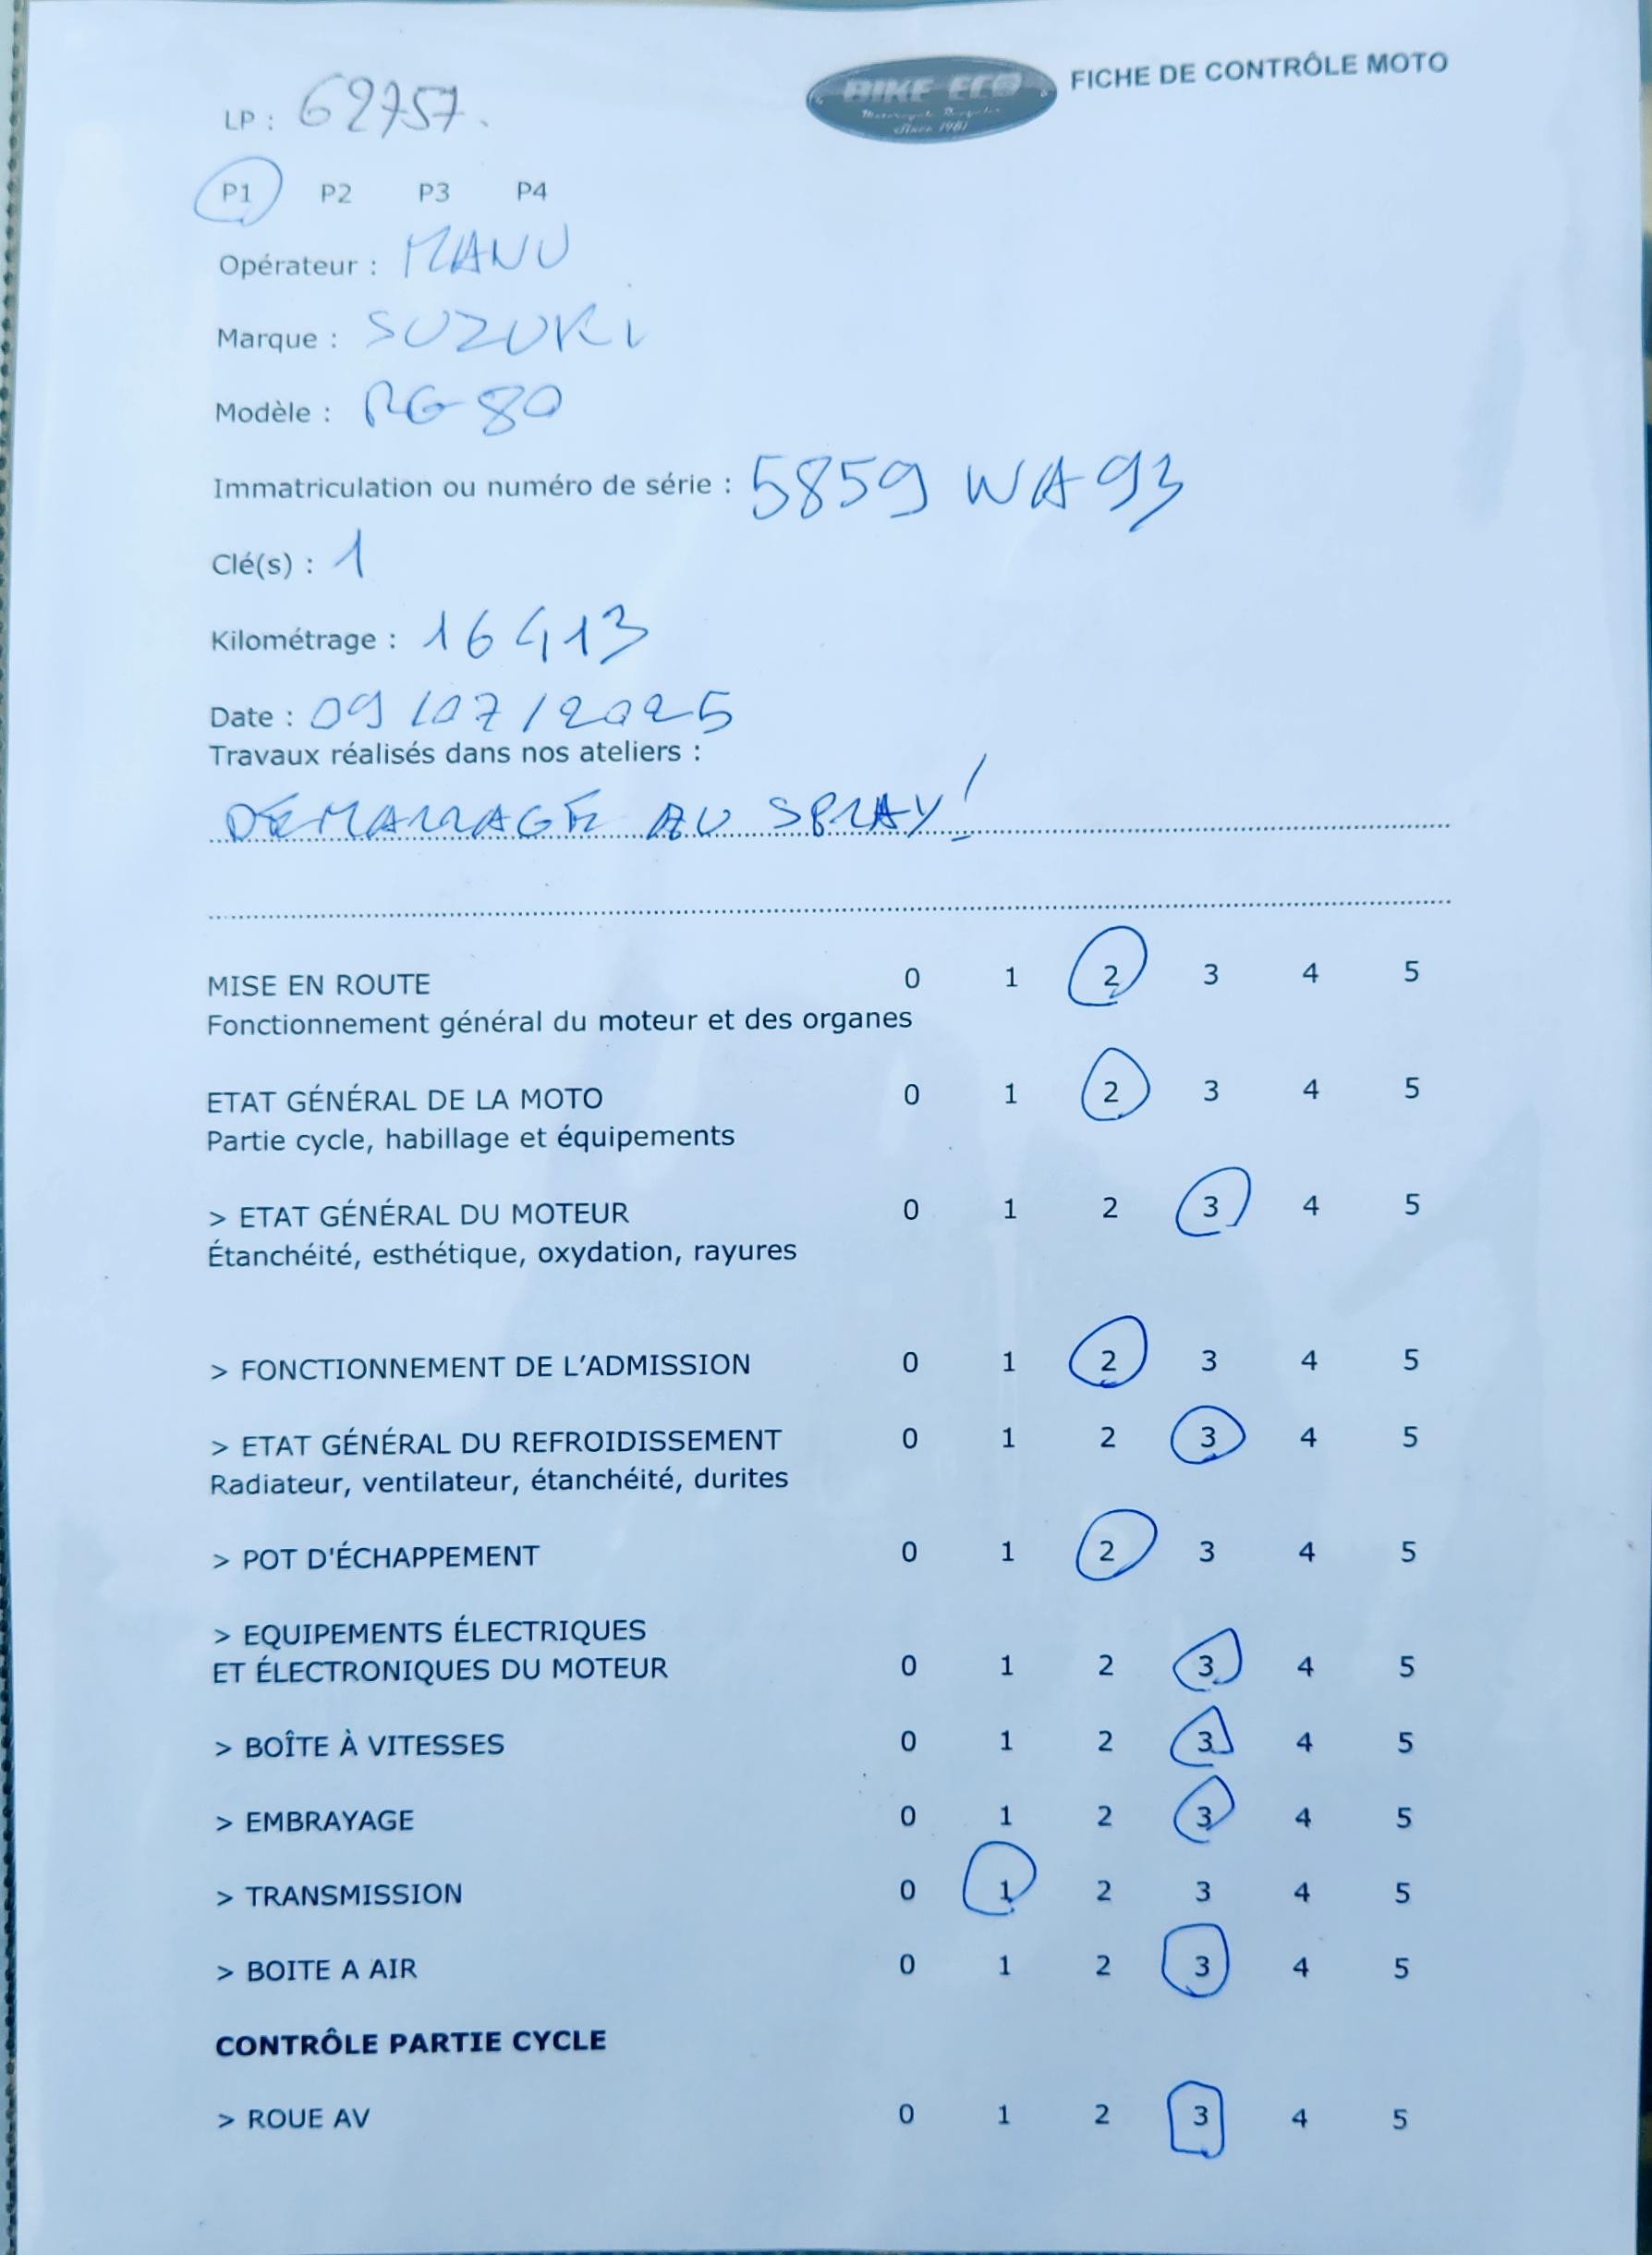 BIKE ECO
Motorcycle Recycler
since 1981
FICHE DE CONTRÔLE MOTO
LP : 62757.
P1 P2 P3 P4
Opérateur : MANU
Marque : SUZUKI
Modèle : RG 80
Immatriculation ou numéro de série : 5859 WA 93
Clé(s) : 1
Kilométrage : 16413
Date : 09/07/2025
Travaux réalisés dans nos ateliers :
DEMARRAGE AU SPRAY!
MISE EN ROUTE 0 1 2 3 4 5
Fonctionnement général du moteur et des organes
ETAT GÉNÉRAL DE LA MOTO 0 1 2 3 4 5
Partie cycle, habillage et équipements
> ETAT GÉNÉRAL DU MOTEUR 0 1 2 3 4 5
Étanchéité, esthétique, oxydation, rayures
> FONCTIONNEMENT DE L'ADMISSION 0 1 2 3 4 5
> ETAT GÉNÉRAL DU REFROIDISSEMENT 0 1 2 3 4 5
Radiateur, ventilateur, étanchéité, durites
> POT D'ÉCHAPPEMENT 0 1 2 3 4 5
> EQUIPEMENTS ÉLECTRIQUES
ET ÉLECTRONIQUES DU MOTEUR 0 1 2 3 4 5
> BOÎTE À VITESSES 0 1 2 3 4 5
> EMBRAYAGE 0 1 2 3 4 5
> TRANSMISSION 0 1 2 3 4 5
> BOITE A AIR 0 1 2 3 4 5
CONTRÔLE PARTIE CYCLE
> ROUE AV 0 1 2 3 4 5